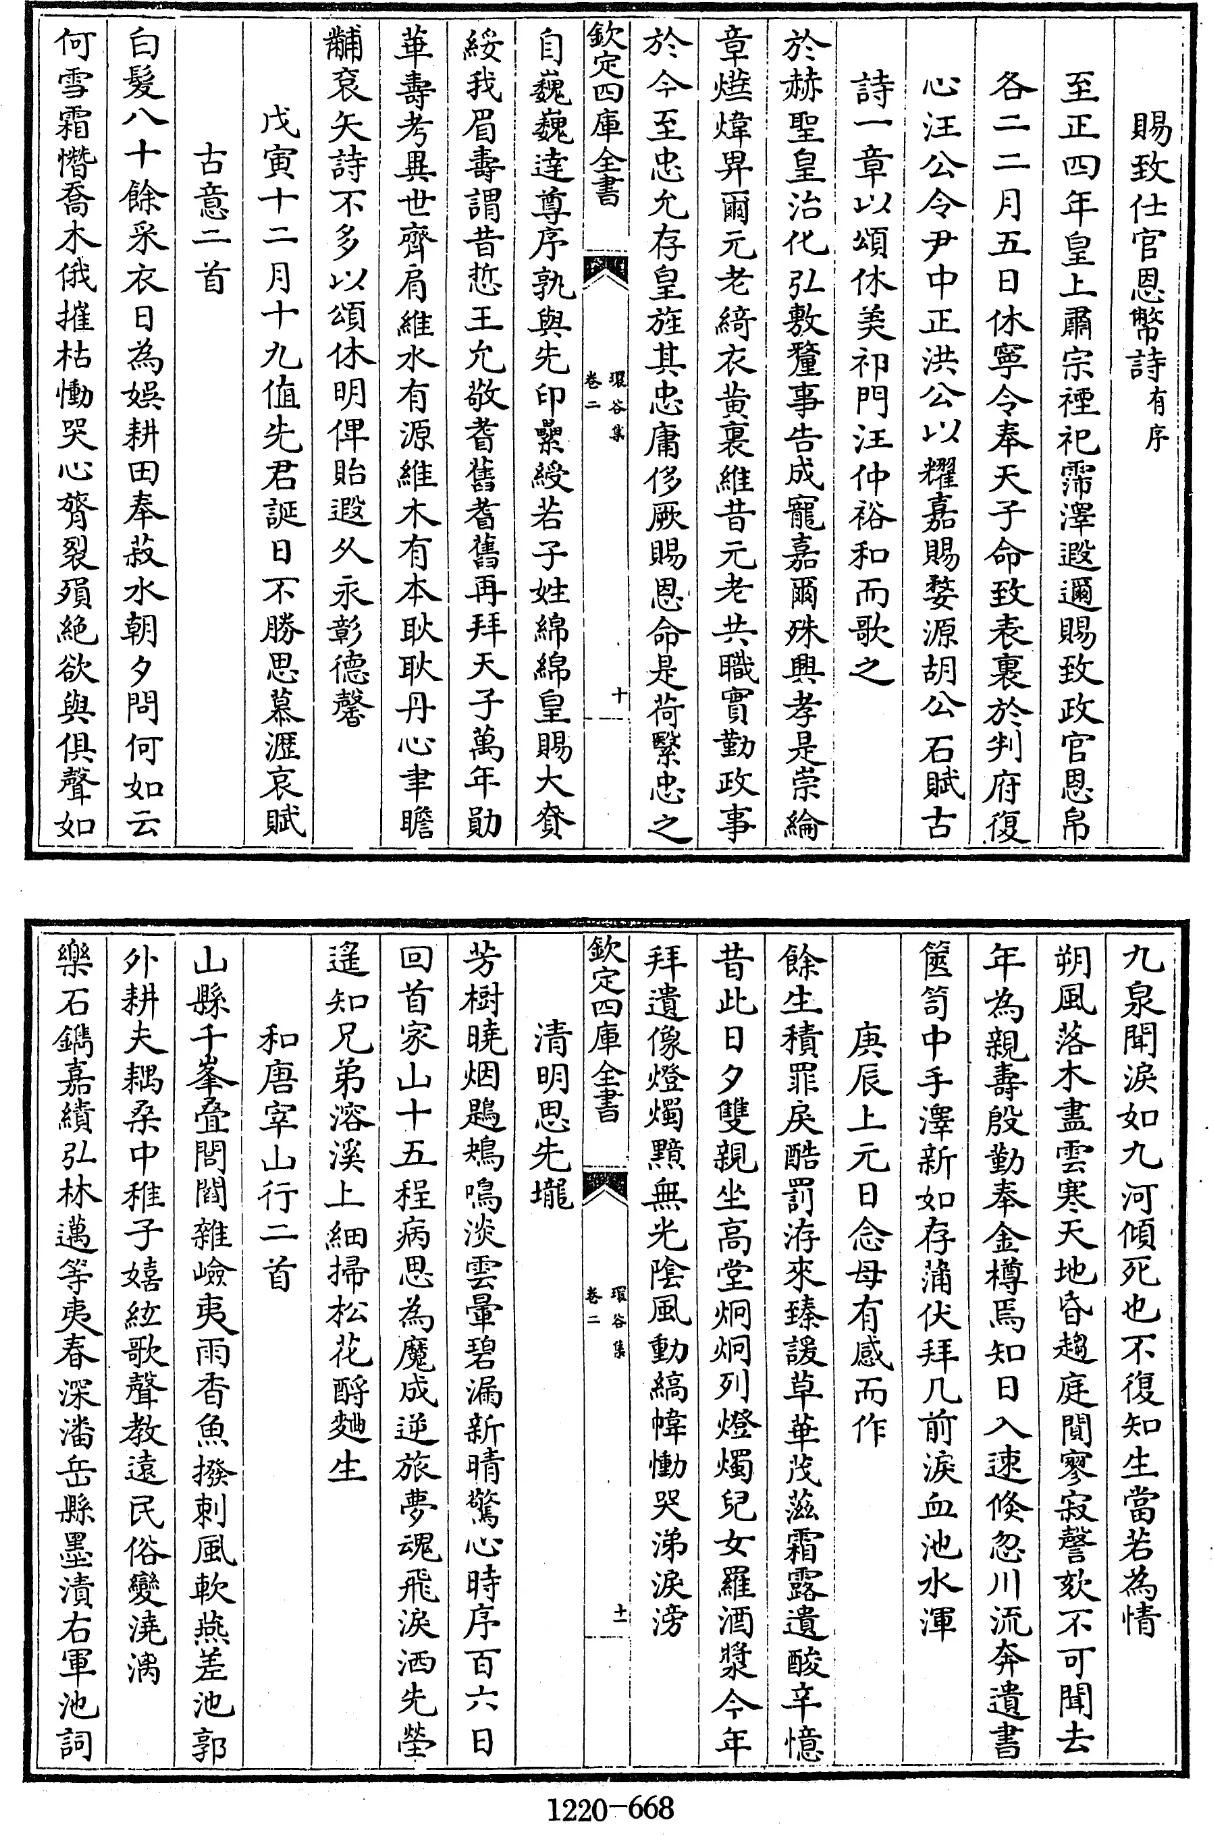 賜致仕官恩幣詩有序
至正四年皇上肅宗禋祀霈澤遐邇賜致政官恩帛
各二二月五日休寧令奉天子命致表裏於判府復
心汪公令尹中正洪公以耀嘉賜婺源胡公石賦古
詩一章以頌休美祁門汪仲裕和而歌之
於赫聖皇治化弘敷釐事告成寵嘉爾殊興孝是崇綸
章煌煒畀爾元老綺衣黃裏維昔元老共職實勤政事
於今至忠允存皇旌其忠庸侈厥賜恩命是荷繄忠之
欽定四庫全書
環谷集
卷二
十
自巍巍達尊序孰與先印纍綬若子姓綿綿皇賜大賚
綏我眉壽謂昔哲王允敬耆舊耆舊再拜天子萬年勛
華壽考異世齊肩維水有源維木有本耿耿丹心聿瞻
黼袞矢詩不多以頌休明俾貽遐久永彰德馨
戊寅十二月十九值先君誕日不勝思慕瀝哀賦
古意二首
白髮八十餘采衣日為娛耕田奉菽水朝夕問何如云
何雪霜憯喬木俄摧枯慟哭心膂裂殞絶欲與俱聲如
九泉聞淚如九河傾死也不復知生當若為情
朔風落木盡雲寒天地昏趨庭閴寥寂謦欬不可聞去
年為親壽殷勤奉金樽焉知日入速倏忽川流奔遺書
篋笥中手澤新如存蒲伏拜几前淚血池水渾
庚辰上元日念母有感而作
餘生積罪戾酷罰洊來臻諼草華茂滋霜露遺酸辛憶
昔此日夕雙親坐高堂炯炯列燈燭兒女羅酒漿今年
拜遺像燈燭黯無光陰風動縞幃慟哭涕淚滂
欽定四庫全書
環谷集
卷二
十一
清明思先壠
芳樹曉烟鶗鴂鳴淡雲暈碧漏新晴驚心時序百六日
回首家山十五程病思為魔成逆旅夢魂飛淚洒先塋
遥知兄弟溶溪上細掃松花酹麯生
和唐宰山行二首
山縣千峯疊閭閻雜嶮夷雨香魚撥刺風軟燕差池郭
外耕夫耦桑中稚子嬉絃歌聲教遠民俗變澆漓
樂石鐫嘉績弘林邁等夷春深潘岳縣墨漬右軍池詞
1220-668